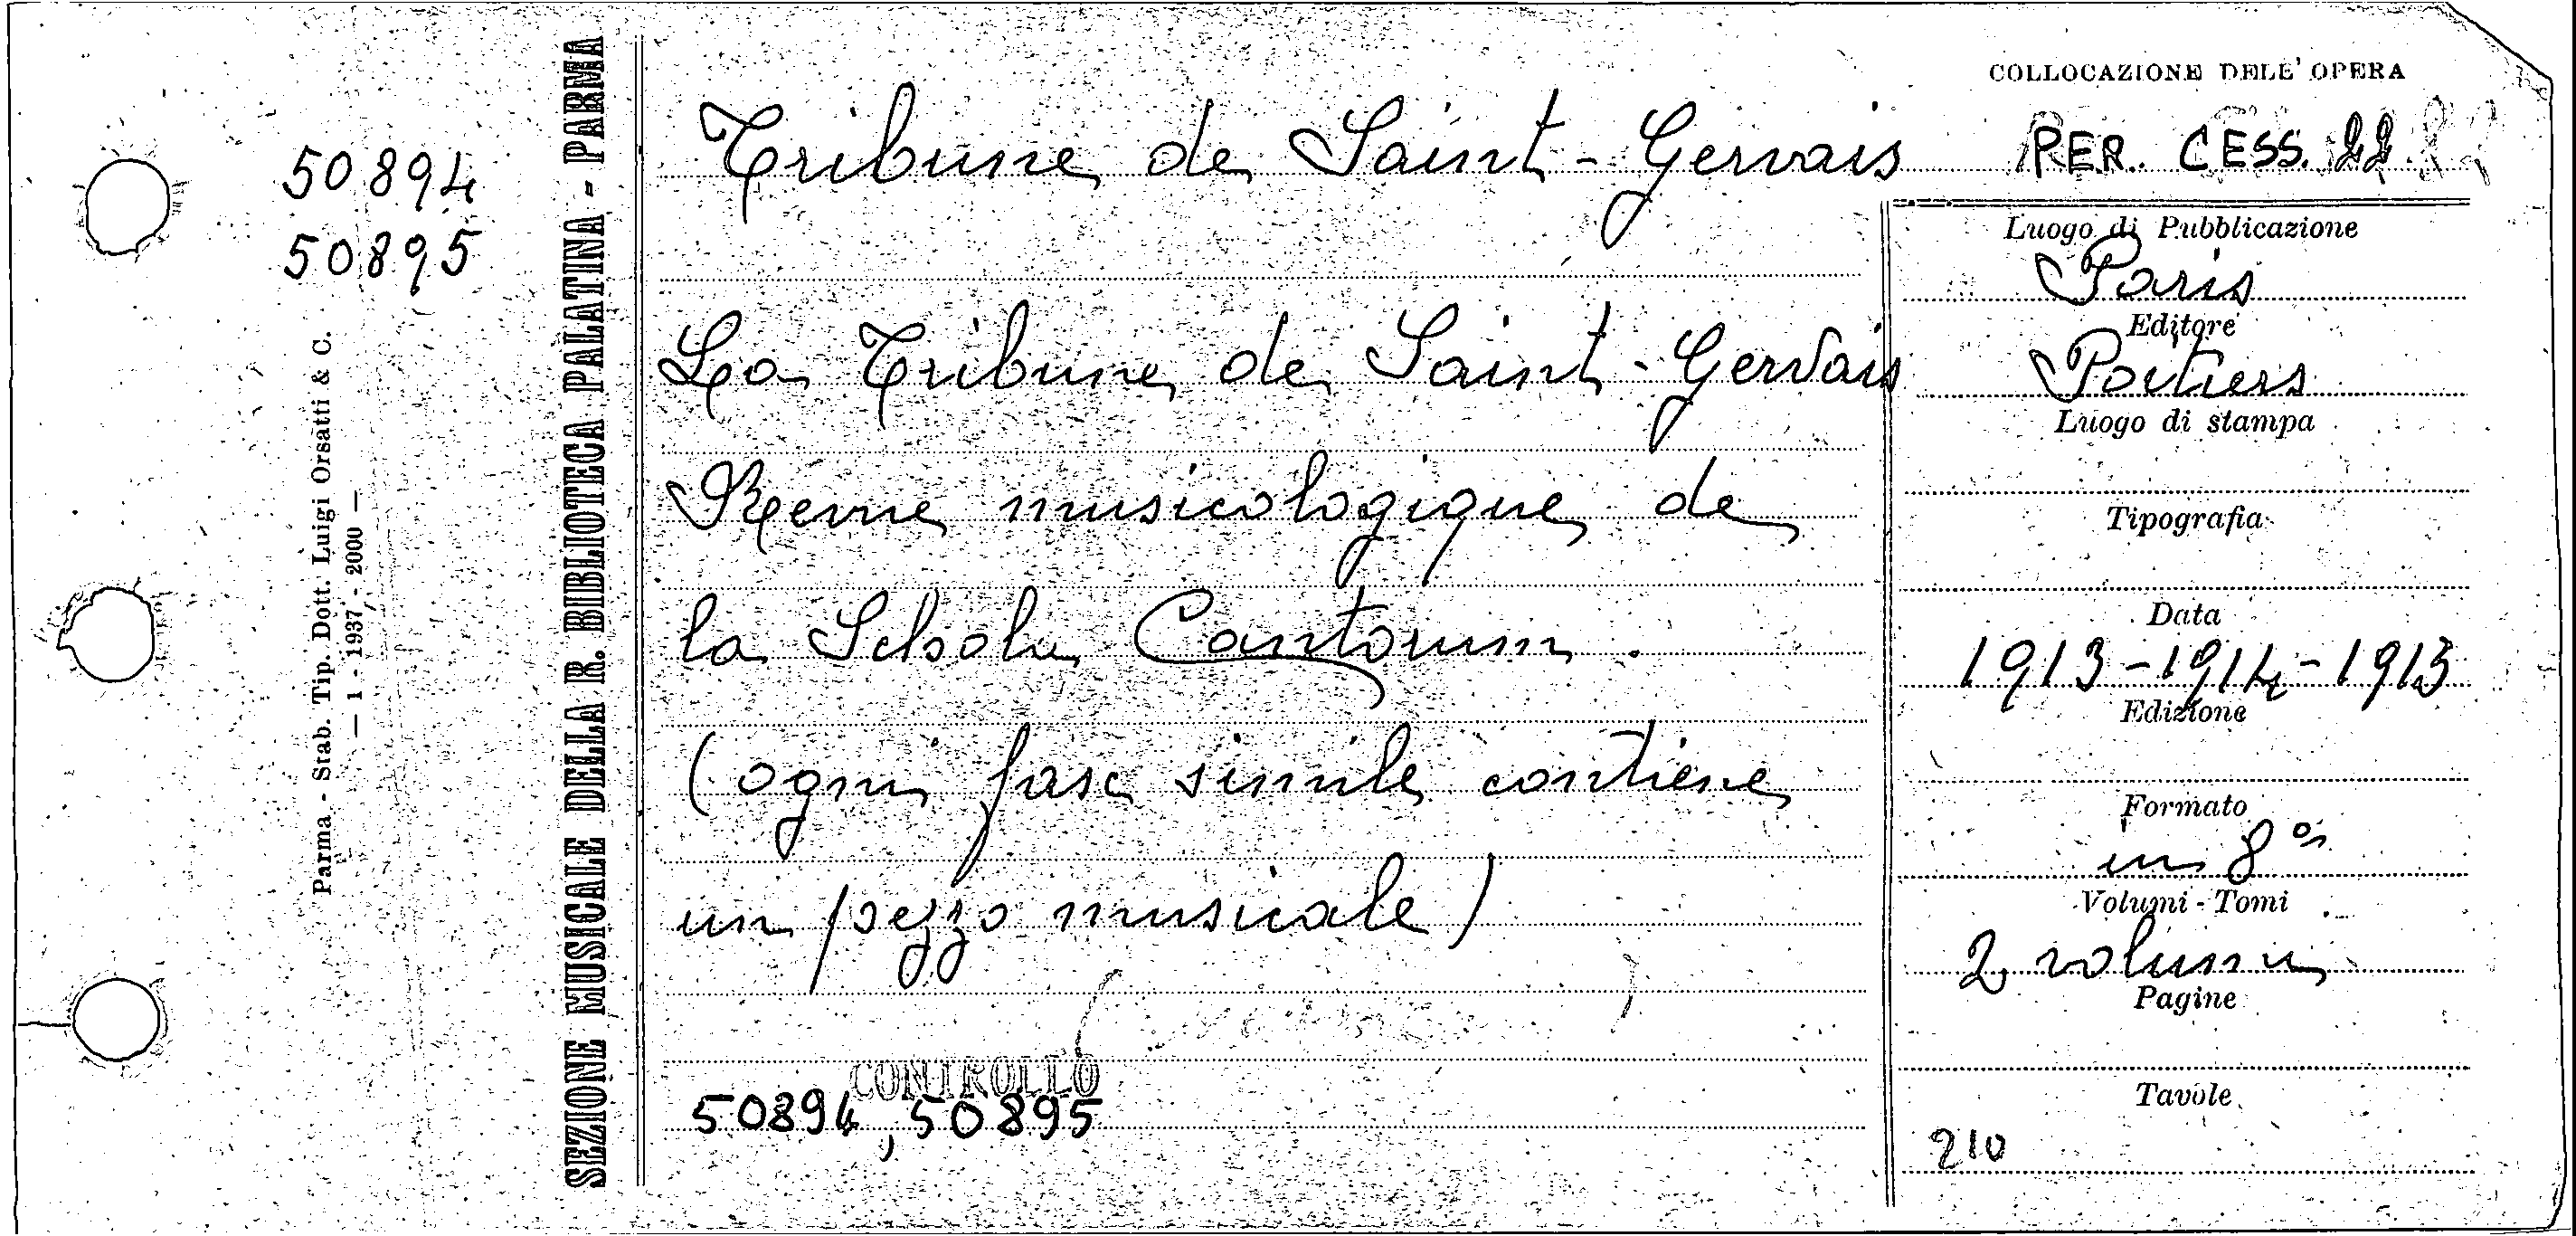 50894
50895
Parma - Stab. Tip. Dott. Luigi Orsatti & C.
— 1 - 1937 - 2000 —
SEZIONE MUSICALE DELLA R. BIBLIOTECA PALATINA - PARMA
Tribune de Saint-Gervais
La Tribune de Saint-Gervais
Revue musicologique de
la Schola Cantorum.
(ogni fasc simile contiene
un pezzo musicale)
CONTROLLO
50894, 50895
COLLOCAZIONE DELL' OPERA
PER. CESS. 22
Luogo di Pubblicazione
Paris
Editore
Poitiers
Luogo di stampa
Tipografia
Data
1913-1914-1913
Edizione
Formato
in 8°
Volumi - Tomi
2 volumi
Pagine
Tavole
210